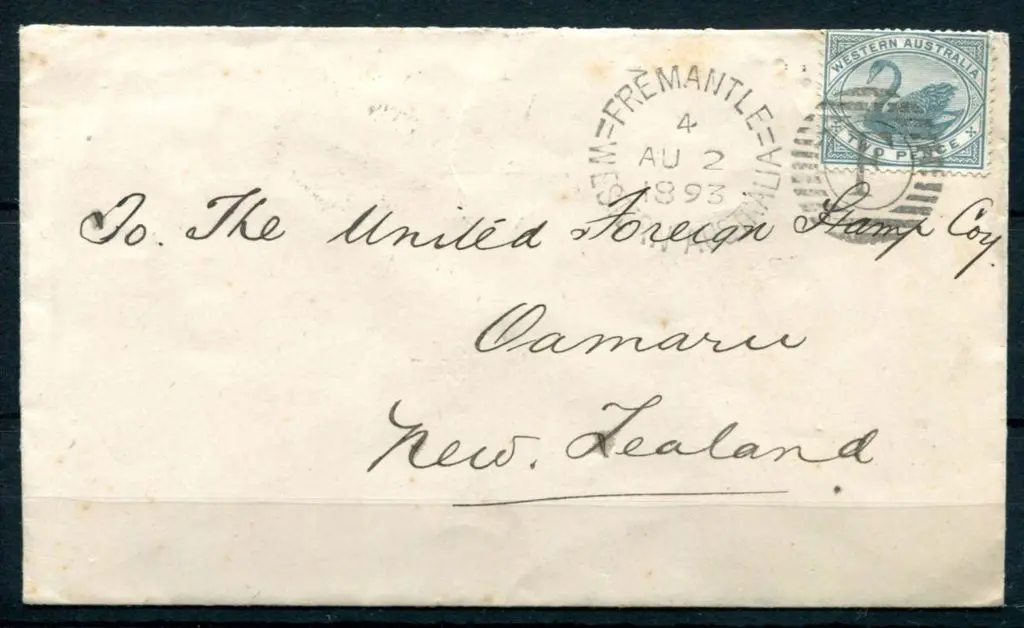 WESTERN AUSTRALIA
TWO PENCE
FREMANTLE
4
AU 2
1893
To. The United Foreign Stamp Coy.
Oamaru
New. Zealand.